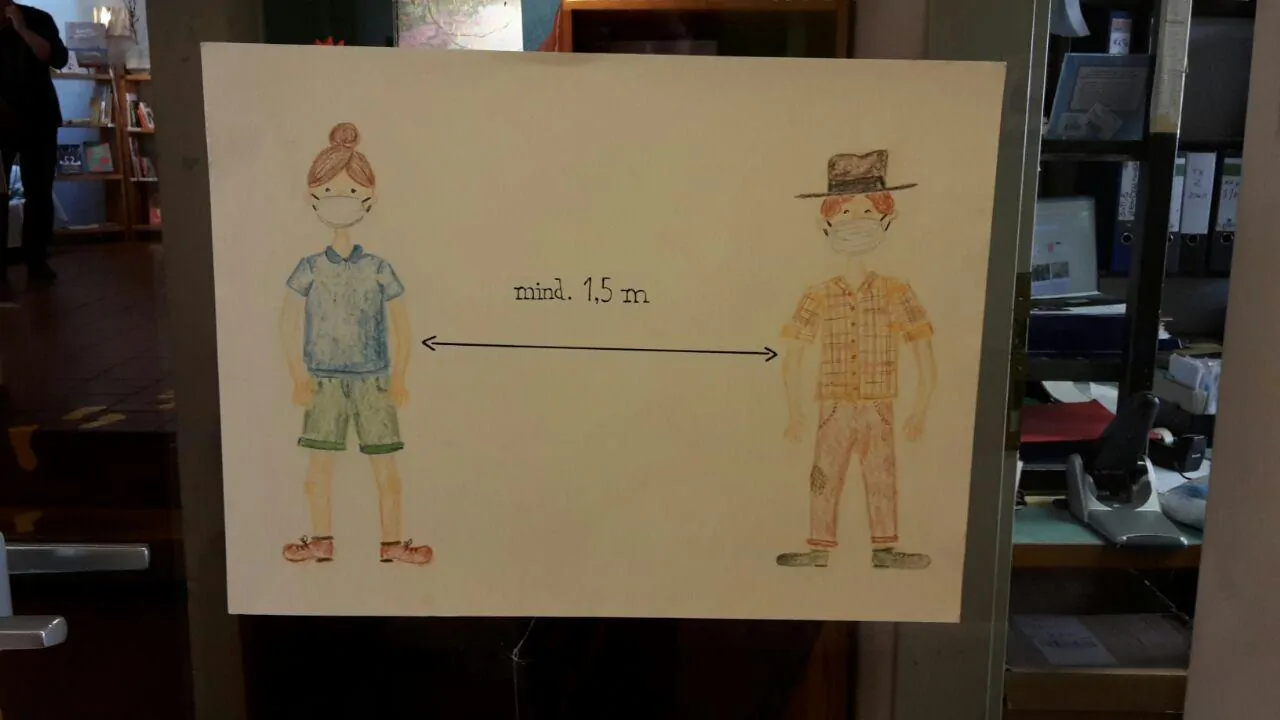 mind. 1,5 m